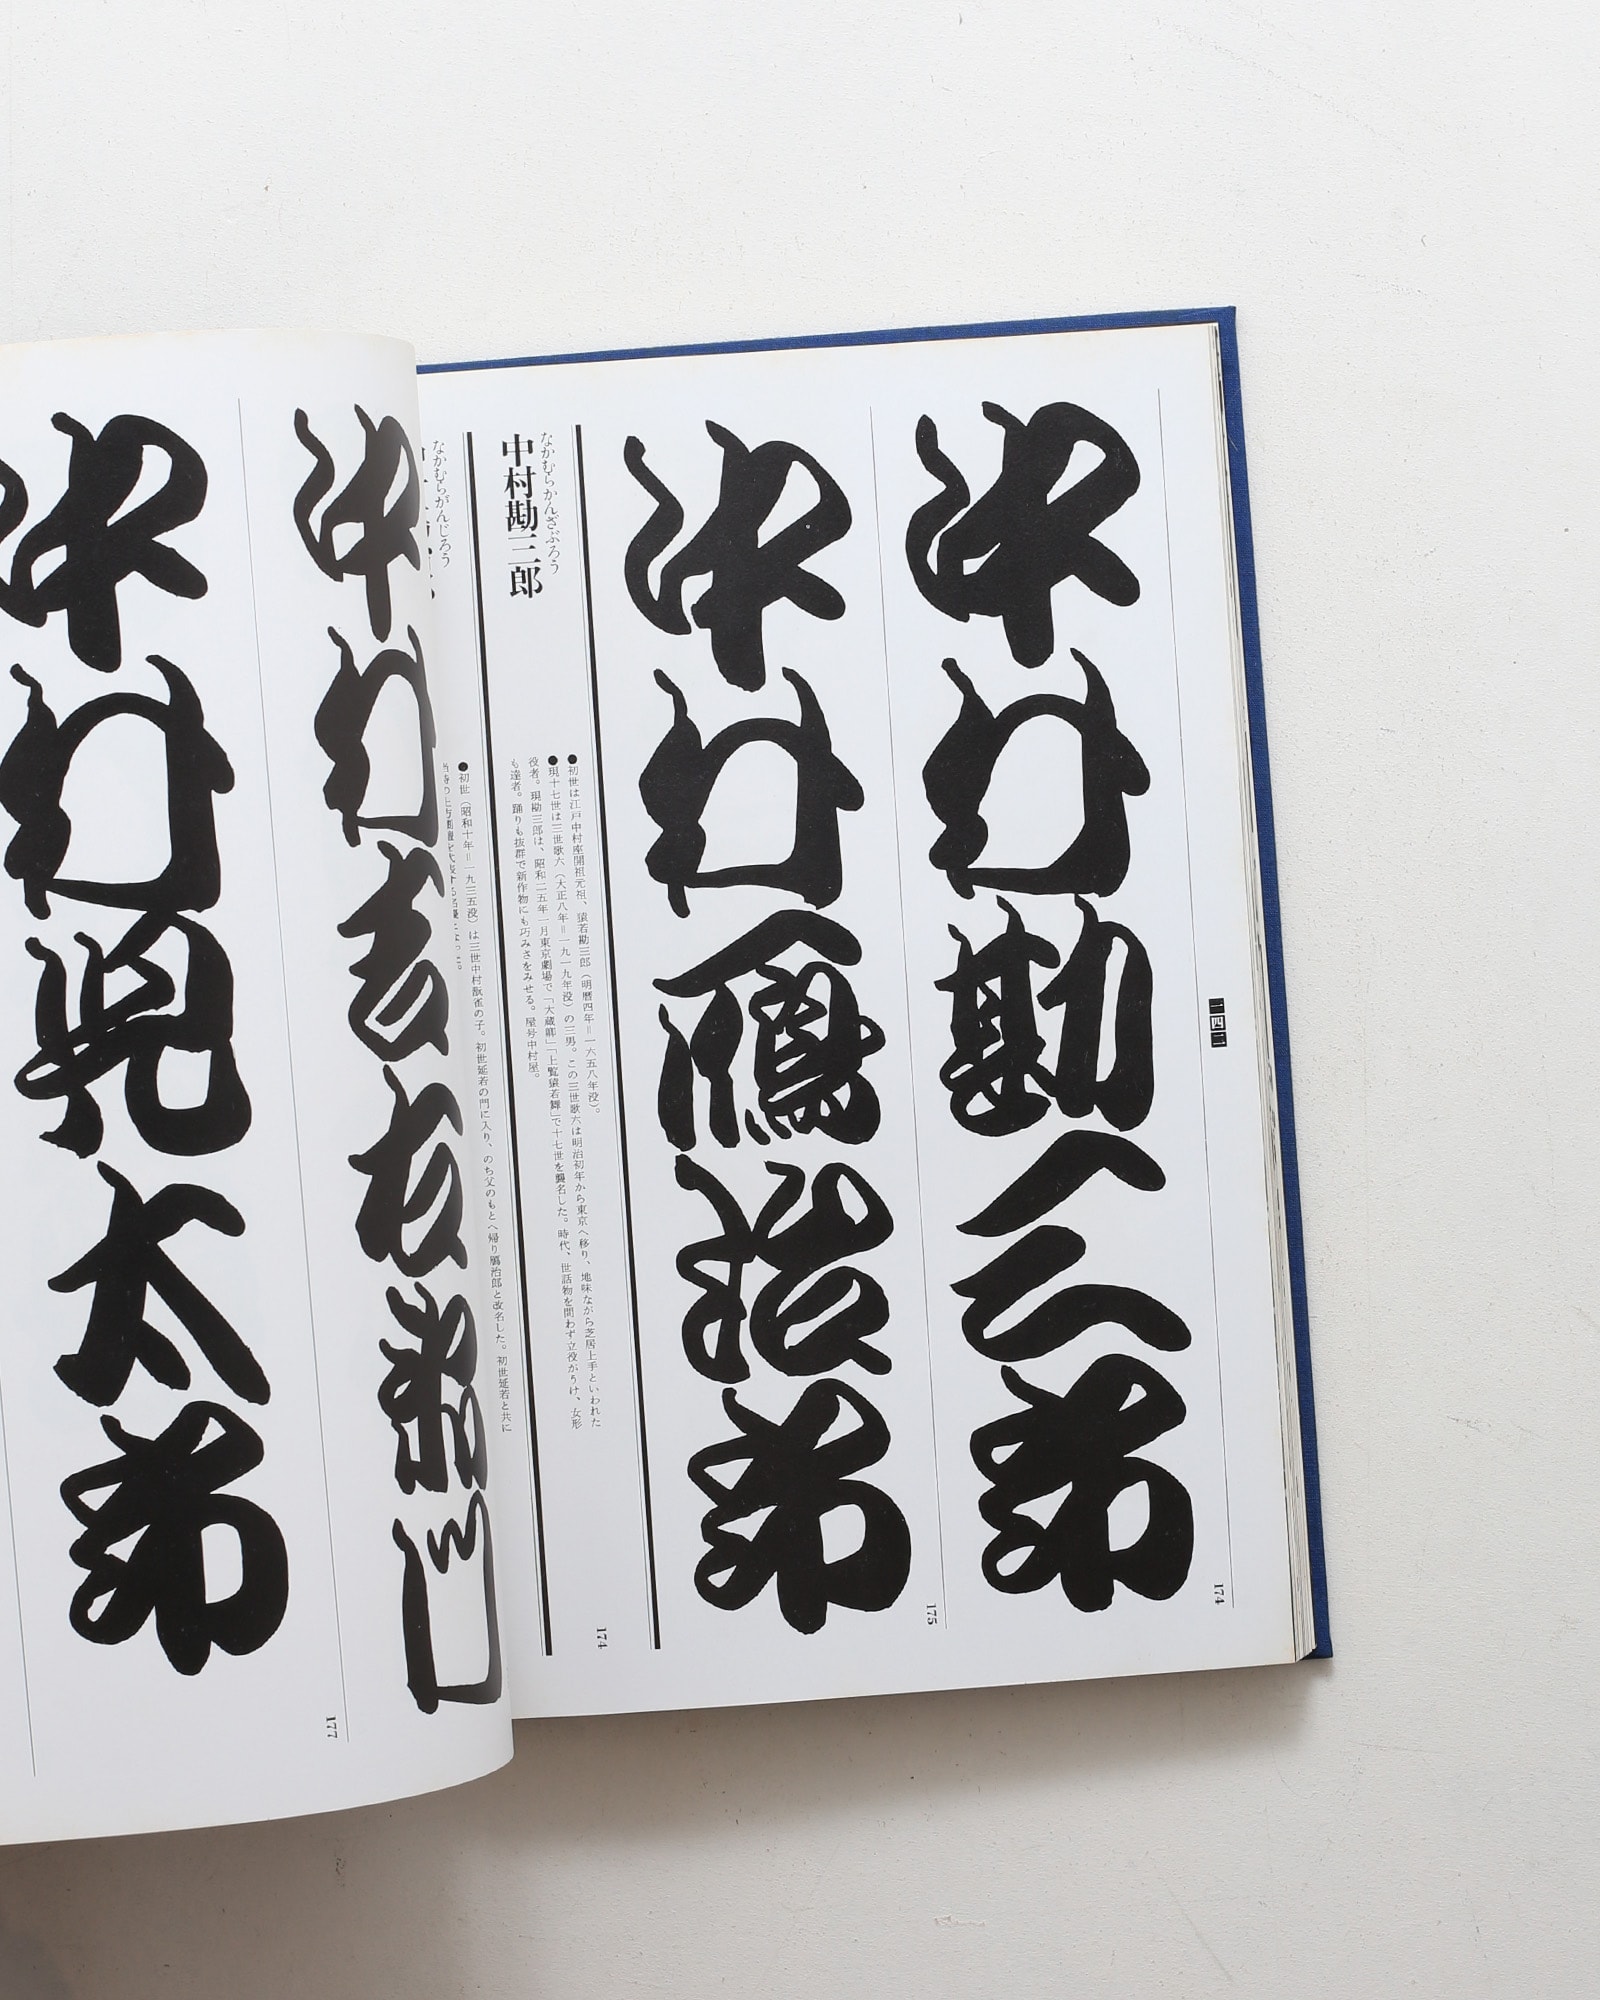 一四二
中村勘三郎
174
中村鴈治郎
175
なかむらかんざぶろう
中村勘三郎
●初世は江戸中村座開祖元祖、猿若勘三郎（明暦四年＝一六五八年没）。
●現十七世は三世歌六（大正八年＝一九一九年没）の三男。この三世歌六は明治初年から東京へ移り、地味ながら芝居上手といわれた
役者。現勘三郎は、昭和二五年一月東京劇場で「大蔵卿」「上覧猿若舞」で十七世を襲名した。時代、世話物を問わず立役がうけ、女形
も達者。踊りも抜群で新作物にも巧みさをみせる。屋号中村屋。
174
なかむらがんじろう
●初世（昭和十年＝一九三五没）は三世中村翫雀の子。初世延若の門に入り、のち父のもとへ帰り鴈治郎と改名した。初世延若と共に
中村吉右衛門
177
中村児太郎